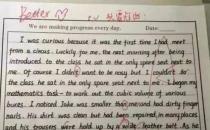 Better
We are making progress every day. Date:
I was curious because it was the first time I had met
from a circus. Luckily for me, the next morning after being
introduced to the class he sat in the only spare seat next to
me. Of course I didn't want to be nosy but I couldn't to
the class he sat in the only spare seat next to me. I began my
mathematics task- to work out the cubic volume of various
boxes. I noticed Jake was smaller than me and had dirty finger
nails. His shirt was clean but had been repaired in many places
and his trousers were held up by a wide leather belt. As he